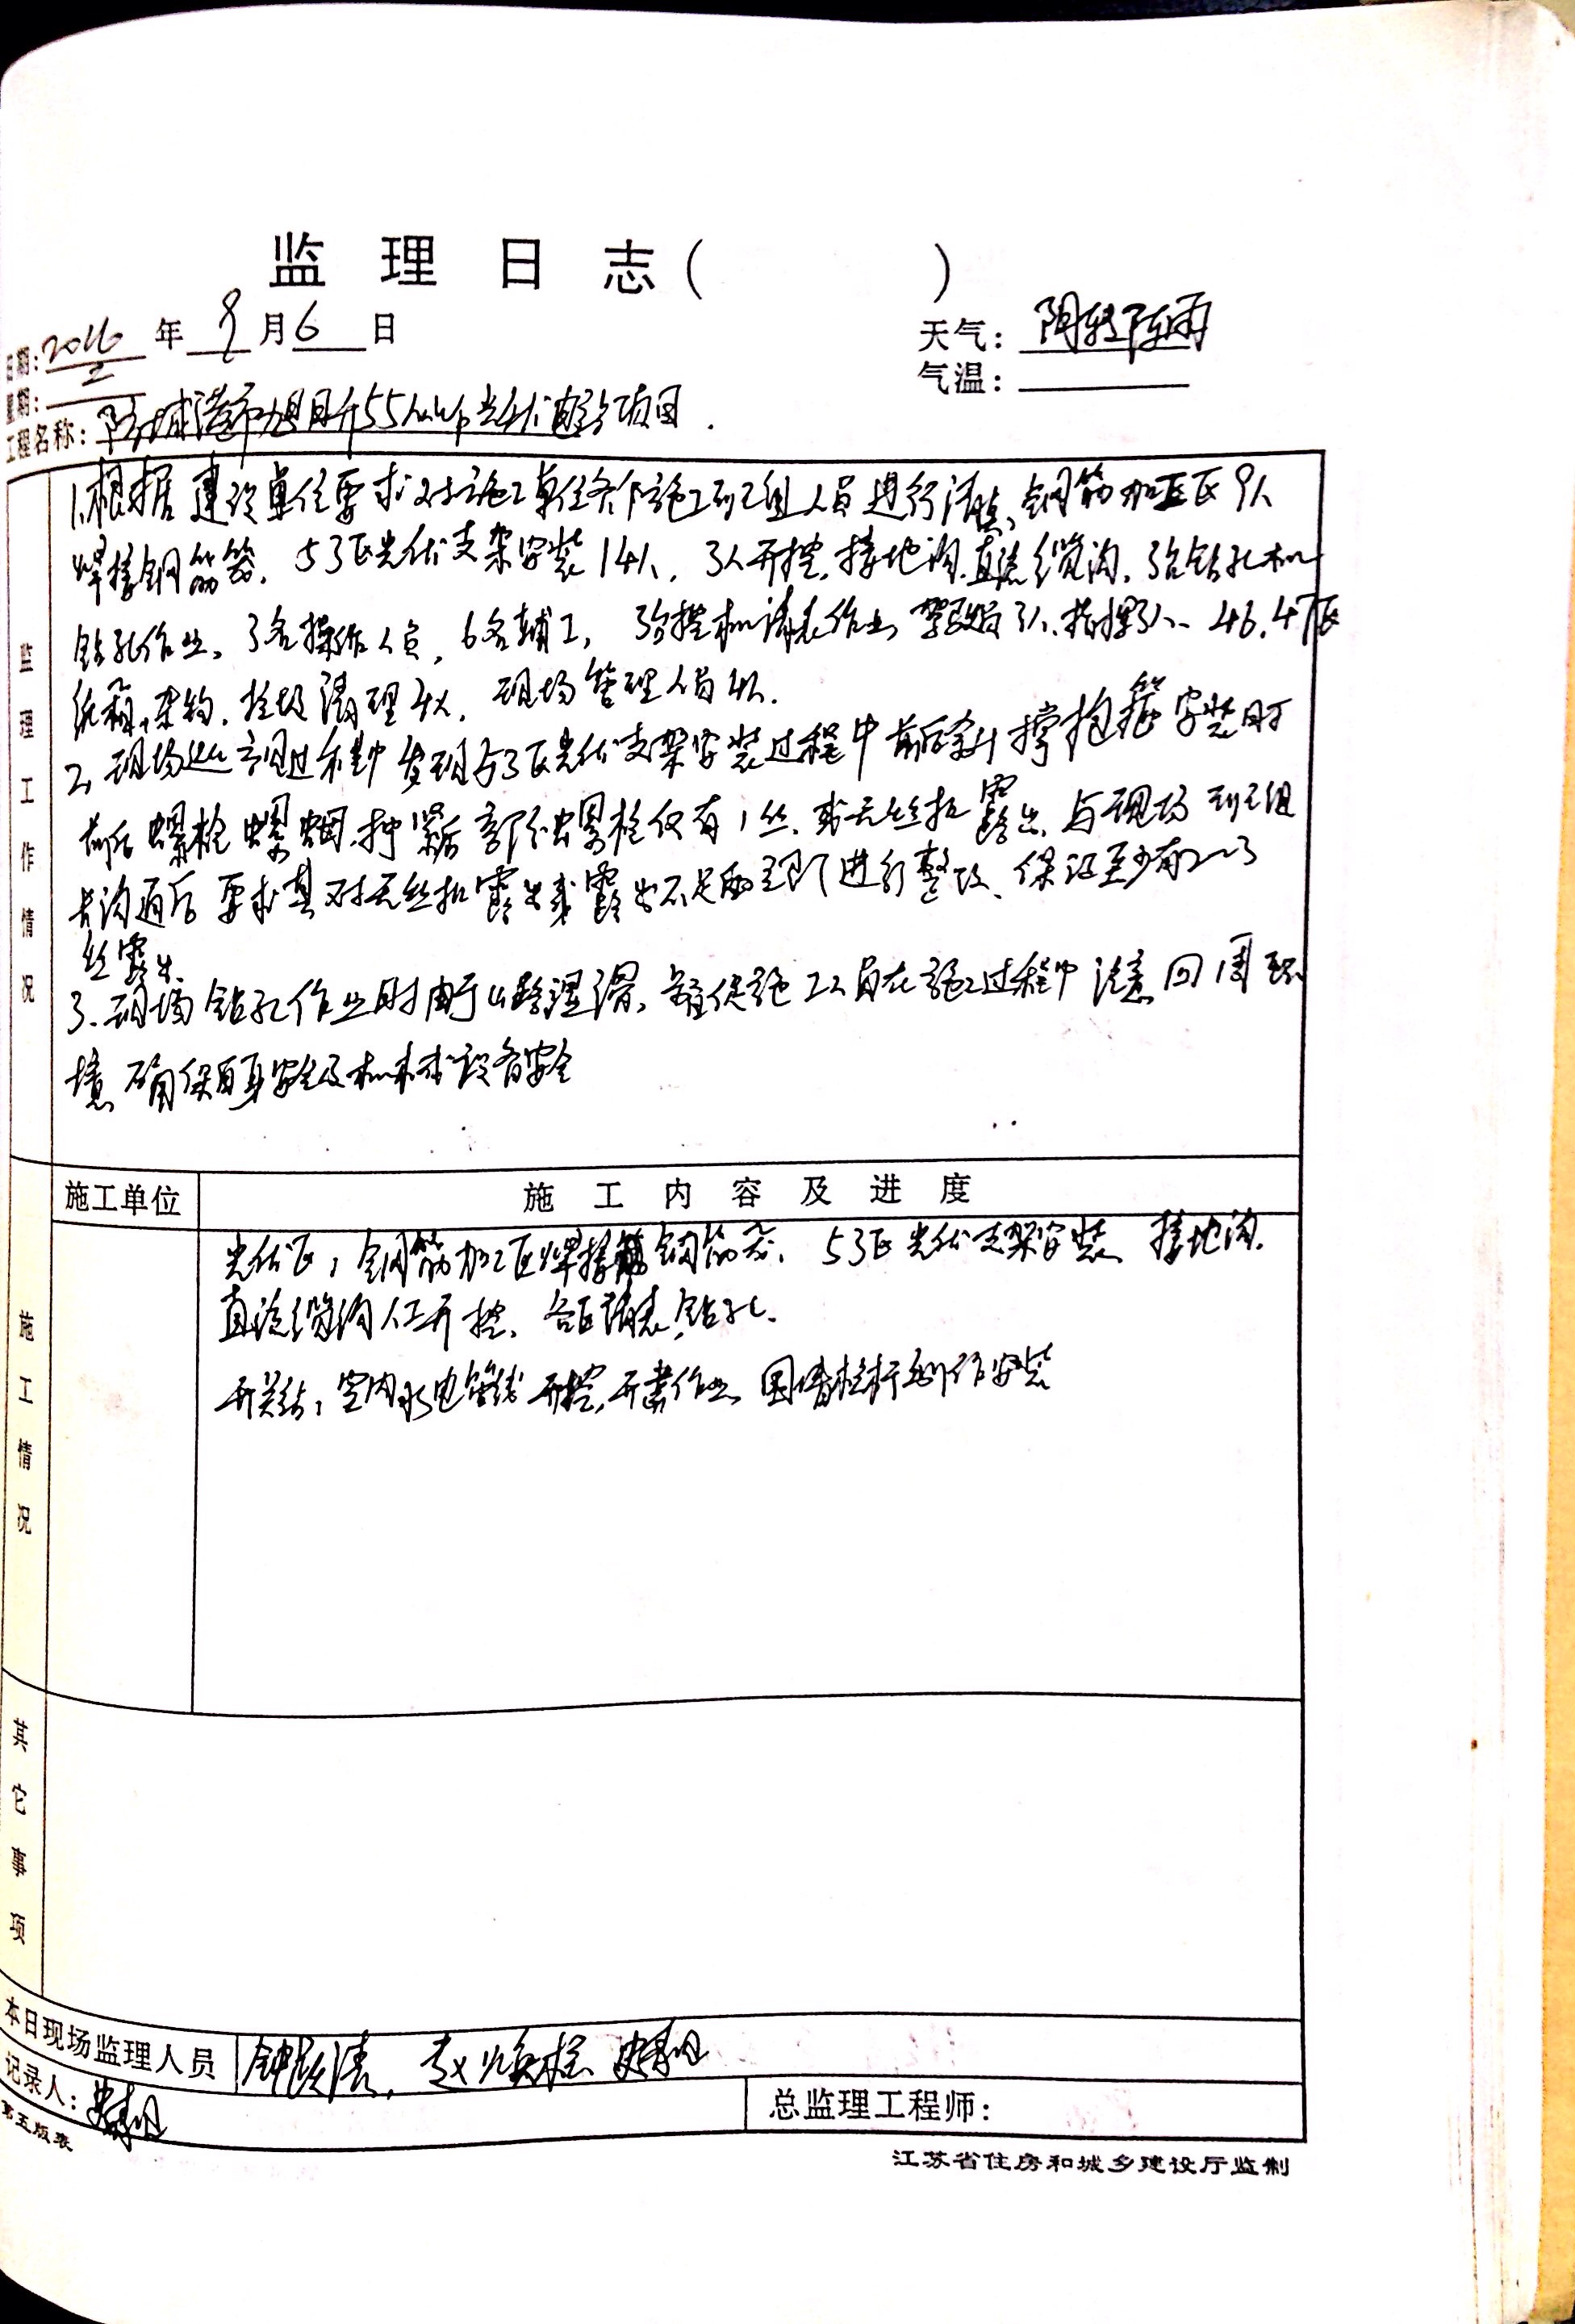 监 理 日 志 (            )
日期: 2016 年 9 月 6 日
天气: 阴转阵雨
星期: 二
气温:
工程名称: 防城港市旭日升55MWp光伏电站项目.
监理工作情况
1、根据建设单位要求对施工单位各个施工班组人员进行清点、钢筋加工区9人
焊接钢筋笼. 53区光伏支架安装14人, 3人开挖.接地沟.直流缆沟. 3台钻孔机
钻孔作业, 3名操作人员, 6名辅工, 3台挖机清表作业 驾驶员3人.指挥3人、46.47区
纸箱.杂物.垃圾清理4人. 现场管理人员4人.
2、现场巡视过程中发现53区光伏支架安装过程中前后斜撑抱箍安装时
前后螺栓螺帽拧紧后部分螺栓仅有1丝.或无丝扣露出、与现场班组
长沟通后要求其对无丝扣露出或露出不足的立即进行整改、保证至少有2~3
丝露出
3、现场钻孔作业时由于山路湿滑、督促施工人员在施工过程中注意四周环
境 确保自身安全及机械设备安全
施工情况
施工单位
施 工 内 容 及 进 度
光伏区: 钢筋加工区焊接钢筋笼. 53区光伏支架安装、接地沟.
直流缆沟人工开挖、各区清表.钻孔.
开关站: 室内水电管线开挖,开凿作业 围墙栏杆制作安装
其它事项
本日现场监理人员
记录人:
总监理工程师:
第五版表
江苏省住房和城乡建设厅监制